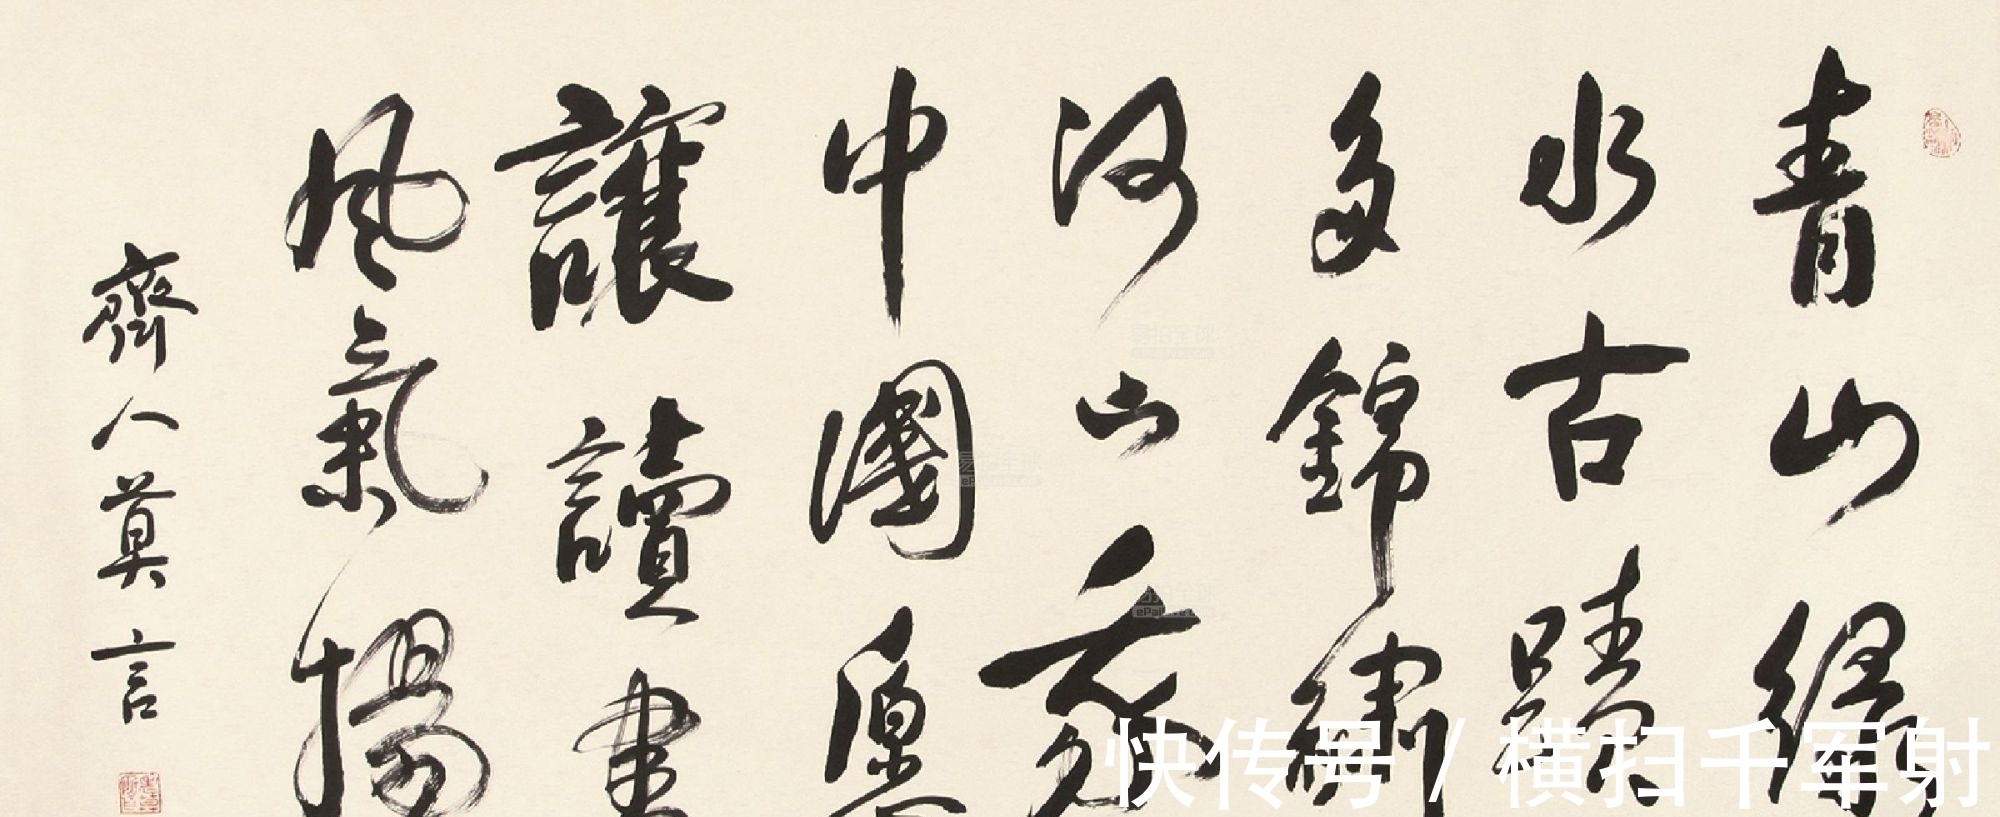 青山緑
水古蹟
多錦繡
河山養
中國願
讓讀書
風氣揚
齊人莫言
快传号 / 横扫千军射